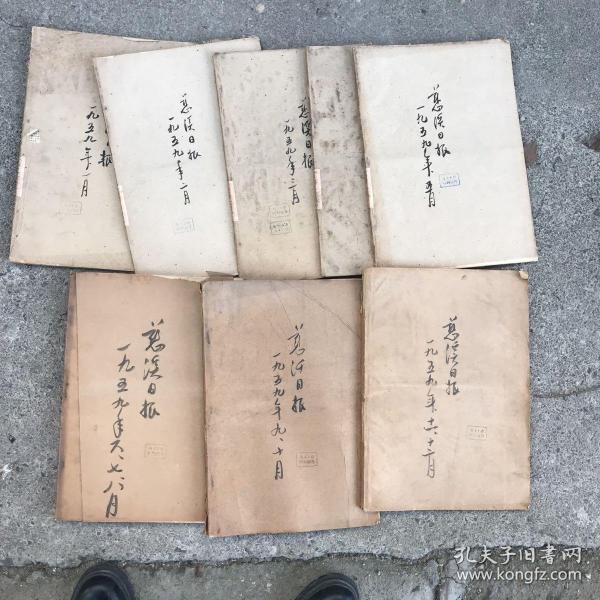 日报
一九五九年一月
慈溪日报
一九五九年二月
慈溪日报
一九五九年三月
慈溪日报
一九五九年五月
慈溪日报
一九五九年六、七、八月
慈溪日报
一九五九年九、十月
慈溪日报
一九五九年十一、十二月
孔夫子旧书网
www.kongfz.com